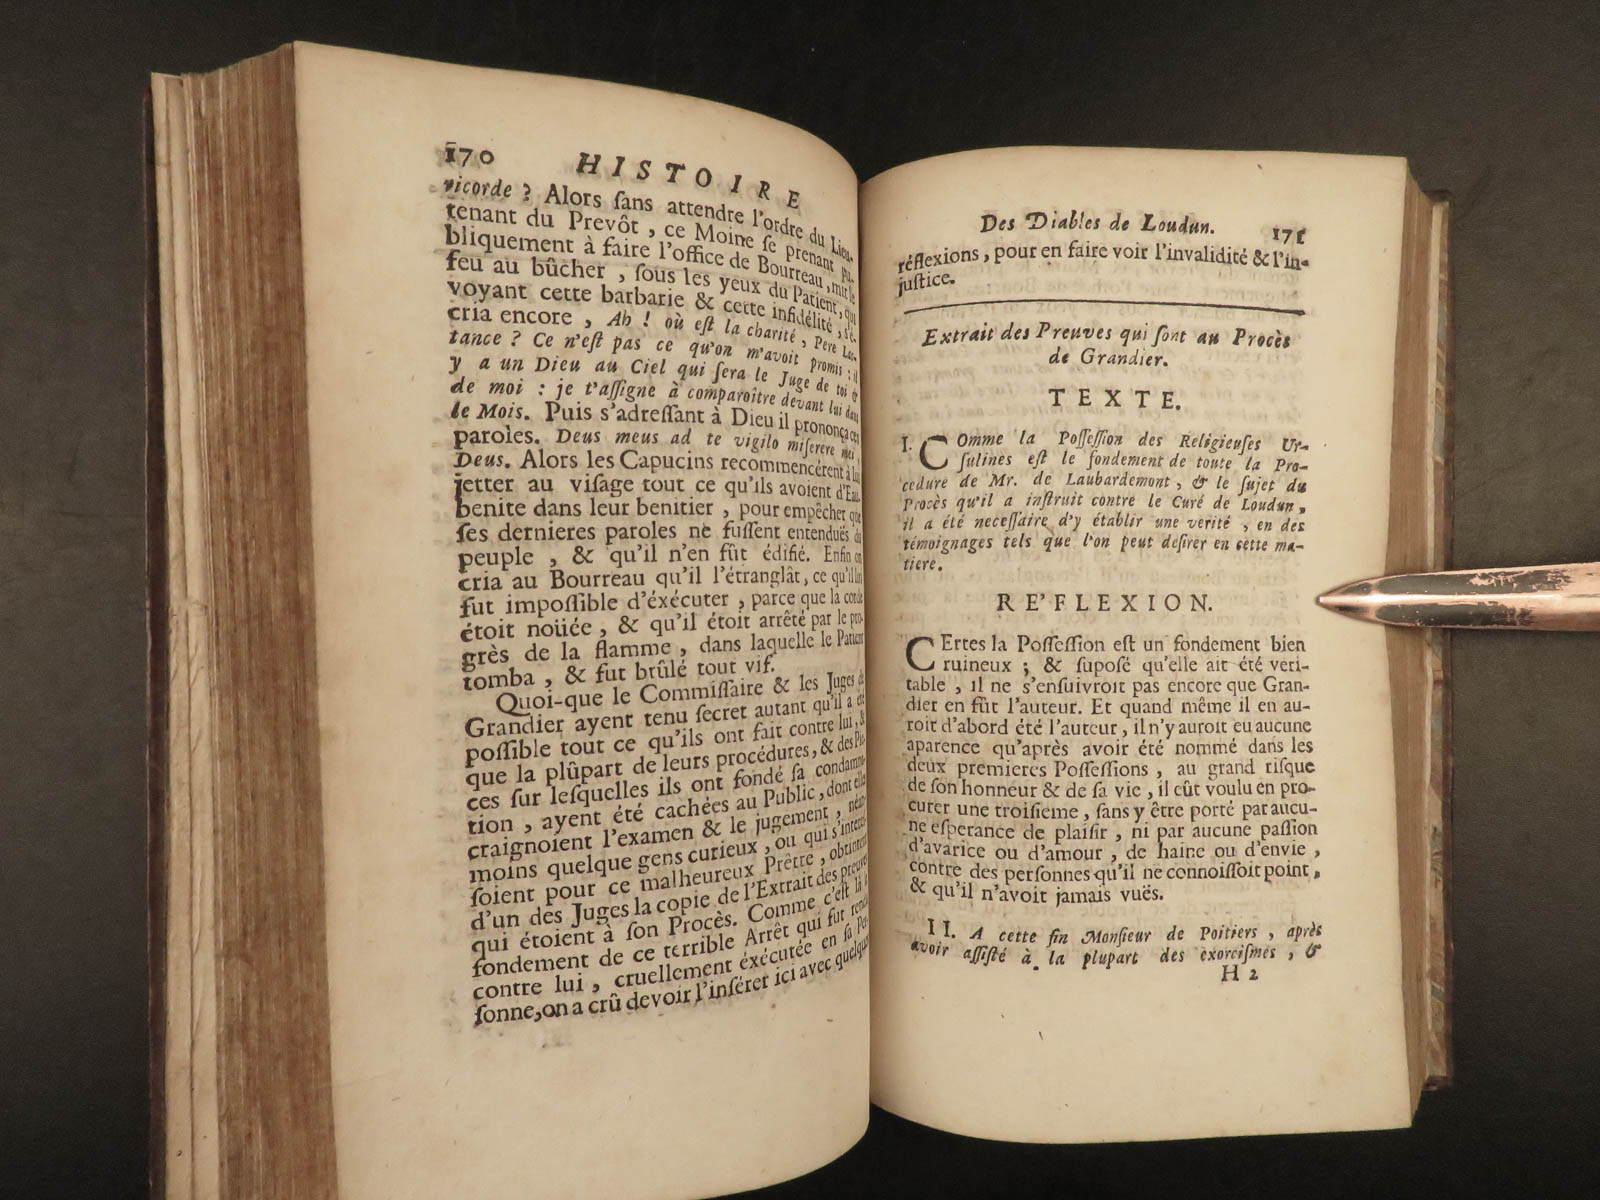 170 HISTOIRE
ricorde ? Alors ſans attendre l'ordre du Lieu-
tenant du Prevôt , ce Moine ſe prenant pu-
bliquement à faire l'office de Bourreau , mit le
feu au bûcher , ſous les yeux du Patient, qui
voyant cette barbarie & cette infidélité , s'é-
cria encore , Ah ! où eſt la charité , Pere Lac-
tance ? Ce n'eſt pas ce qu'on m'avoit promis : il
y a un Dieu au Ciel qui ſera le Juge de toi &
de moi : je t'aſſigne à comparoître devant lui dans
le Mois. Puis s'adreſſant à Dieu il prononça ces
paroles. Deus meus ad te vigilo miſerere mei ,
Deus. Alors les Capucins recommencérent à lui
jetter au viſage tout ce qu'ils avoient d'Eau-
benite dans leur benitier , pour empêcher que
ſes dernieres paroles ne fuſſent entenduës du
peuple , & qu'il n'en fût édifié. Enfin on
cria au Bourreau qu'il l'étranglât, ce qu'il lui
fut impoſſible d'éxécuter , parce que la corde
étoit noüée , & qu'il étoit arrêté par le pro-
grès de la flamme , dans laquelle le Patient
tomba , & fut brûlé tout vif.
Quoi-que le Commiſſaire & les Juges de
Grandier ayent tenu ſecret autant qu'il a été
poſſible tout ce qu'ils ont fait contre lui, &
que la plûpart de leurs procédures, & des Pié-
ces ſur leſquelles ils ont fondé ſa condamna-
tion , ayent été cachées au Public , dont elles
craignoient l'examen & le jugement , néan-
moins quelque gens curieux , ou qui s'intereſ-
ſoient pour ce malheureux Prêtre , obtinrent
d'un des Juges la copie de l'Extrait des preuves
qui étoient à ſon Procès. Comme c'eſt là le
fondement de ce terrible Arrêt qui fut rendu
contre lui , cruellement éxécutée en ſa Per-
ſonne, on a crû devoir l'inſérer ici avec quelques
Des Diables de Loudun. 171
réflexions , pour en faire voir l'invalidité & l'in-
juſtice.
Extrait des Preuves qui ſont au Procès
de Grandier.
TEXTE.
I. COmme la Poſſeſſion des Religieuſes Ur-
ſulines eſt le fondement de toute la Pro-
cedure de Mr. de Laubardemont , & le ſujet du
Procès qu'il a inſtruit contre le Curé de Loudun ,
il a été neceſſaire d'y établir une verité , en des
témoignages tels que l'on peut deſirer en cette ma-
tiere.
RE'FLEXION.
CErtes la Poſſeſſion eſt un fondement bien
ruineux ; & ſupoſé qu'elle ait été veri-
table , il ne s'enſuivroit pas encore que Gran-
dier en fût l'auteur. Et quand même il en au-
roit d'abord été l'auteur , il n'y auroit eu aucune
aparence qu'après avoir été nommé dans les
deux premieres Poſſeſſions , au grand riſque
de ſon honneur & de ſa vie , il eût voulu en pro-
curer une troiſieme , ſans y être porté par aucu-
ne eſperance de plaiſir , ni par aucune paſſion
d'avarice ou d'amour , de haine ou d'envie ,
contre des perſonnes qu'il ne connoiſſoit point ,
& qu'il n'avoit jamais vuës.
II. A cette fin Monſieur de Poitiers , après
avoir aſſiſté à la plupart des exorciſmes , &
H 2